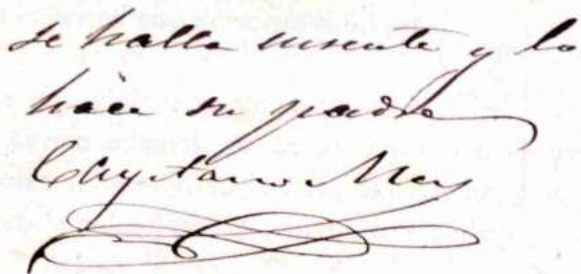 se halla ausente y lo
hace su padre
Cayetano Mas